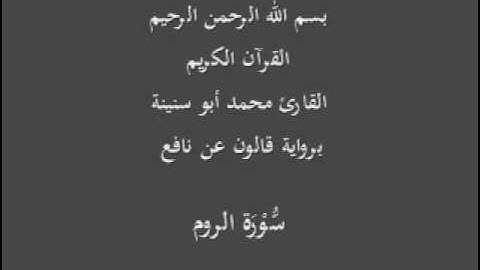 بسم الله الرحمن الرحيم
القرآن الكريم
القارئ محمد أبو سنينة
برواية قالون عن نافع
سُّوْرَة الروم